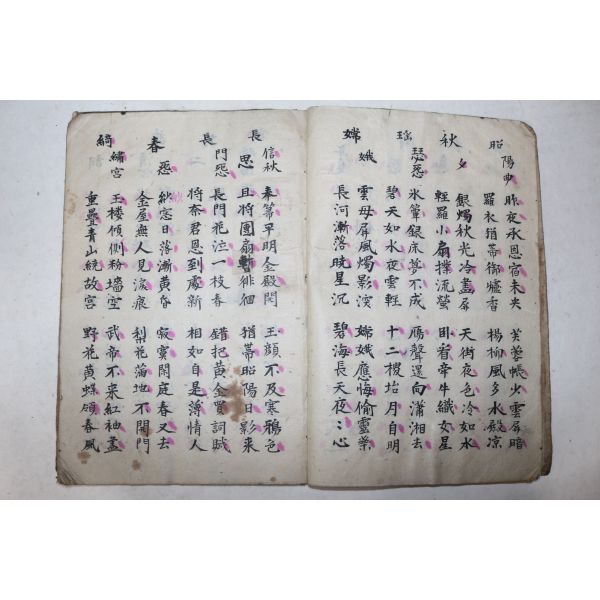 昭陽曲 昨夜承恩宿未央 芙蓉帳小雲屏暗
羅衣猶帶御爐香 楊柳風多水殿凉
秋夕 銀燭秋光冷畫屏 天街夜色冷如水
輕羅小扇撲流螢 卧看牽牛織女星
瑤瑟怨 氷簟銀床夢不成 雁聲還向瀟湘去
碧天如水夜雲輕 十二樓坮月自明
嫦娥 雲母屏風燭影深 嫦娥應悔偸靈藥
長河漸落曉星沉 碧海長天夜〻心
長信秋思 奉箒平明金殿開 玉顔不及寒鴉色
且將團扇暫徘徊 猶帶昭陽日影來
長門怨 長門花泣一枝春 錯把黃金買詞賦
將奈君恩到處新 相如自是薄情人
春怨 紗窓日落漸黃昏 寂寞閑庭春又去
金屋無人見淚痕 梨花滿地不開門
綺繡宮 玉樓傾側粉墻空 武帝不來紅袖盡
重疊青山繞故宮 野花黃蝶領春風